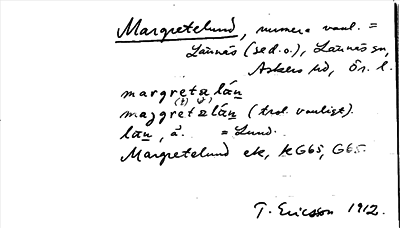 Margretelund, numera vanl. =
Lännäs (sed.o.), Lännäs sn,
Askers hd, Ör. l.
margretalán
maggretalán (trol. vanligt).
lan, å. = Lund.
Margretelund ek, KG65, G65.
T. Ericsson 1912.